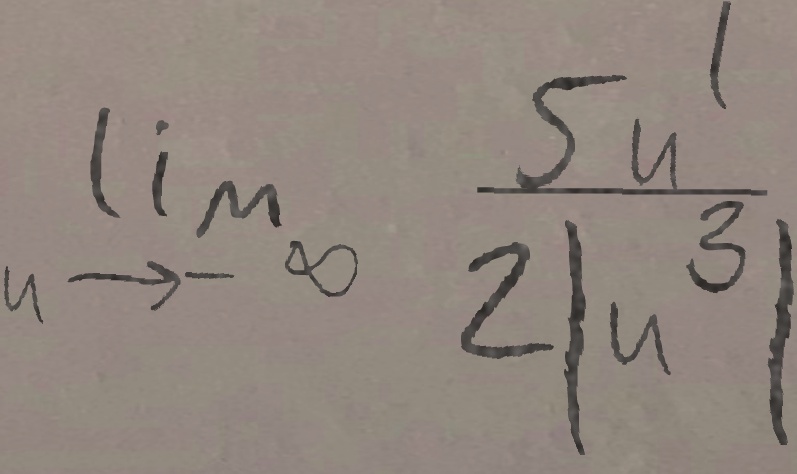 \lim_{u \to -\infty} \frac{5u^1}{2|u^3|}